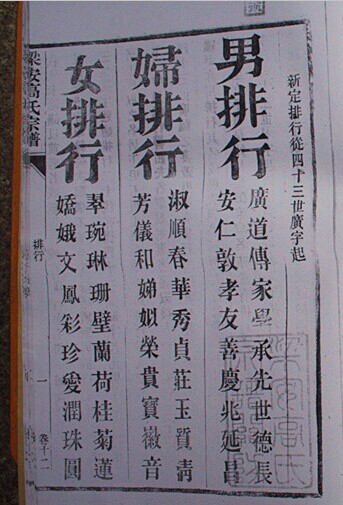 新定排行從四十三世廣字起
男排行
廣道傳家學承先世德長
安仁敦孝友善慶兆延昌
婦排行
淑順春華秀貞莊玉質清
芳儀和娣姒榮貴寶徽音
女排行
翠琬琳珊璧蘭荷桂菊蓮
嬌娥文鳳彩珍愛潤珠圓
梁安高氏宗譜
排行
一
卷十二